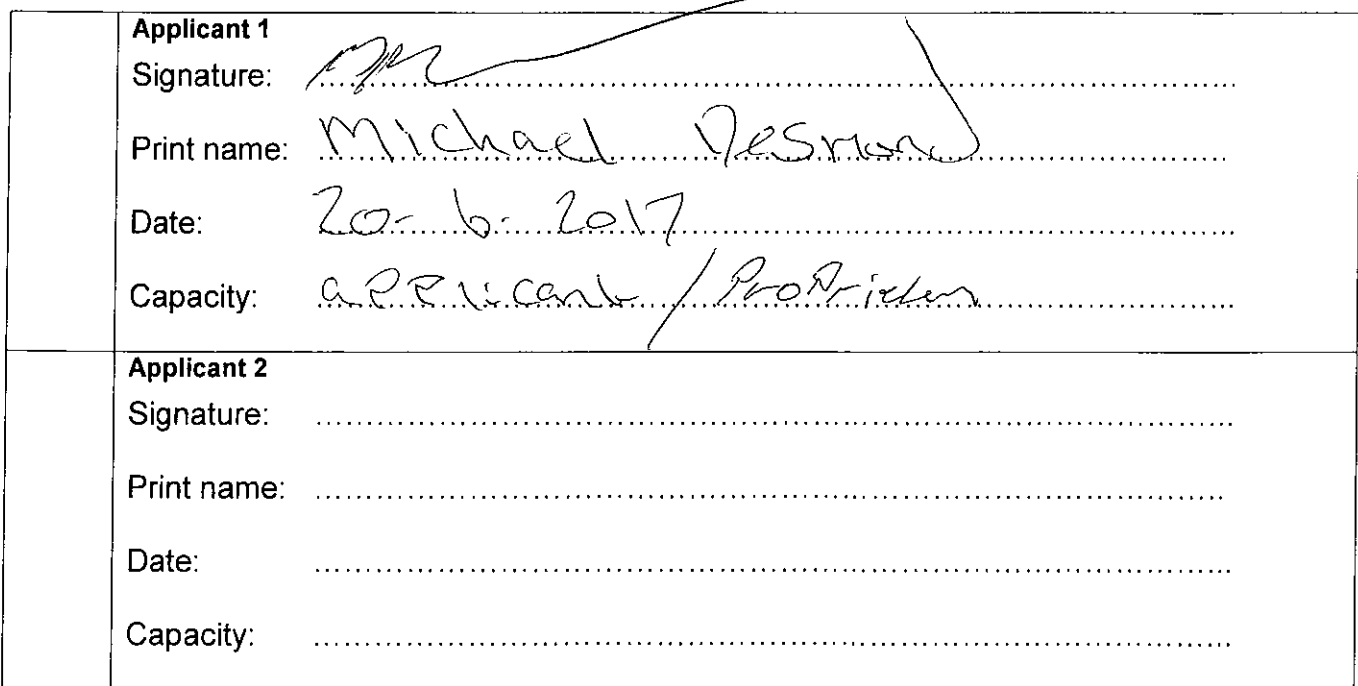 Applicant 1
Signature:
Print name: Michael Desmond
Date: 20-6-2017
Capacity: applicant / Proprietor
Applicant 2
Signature:
Print name:
Date:
Capacity: